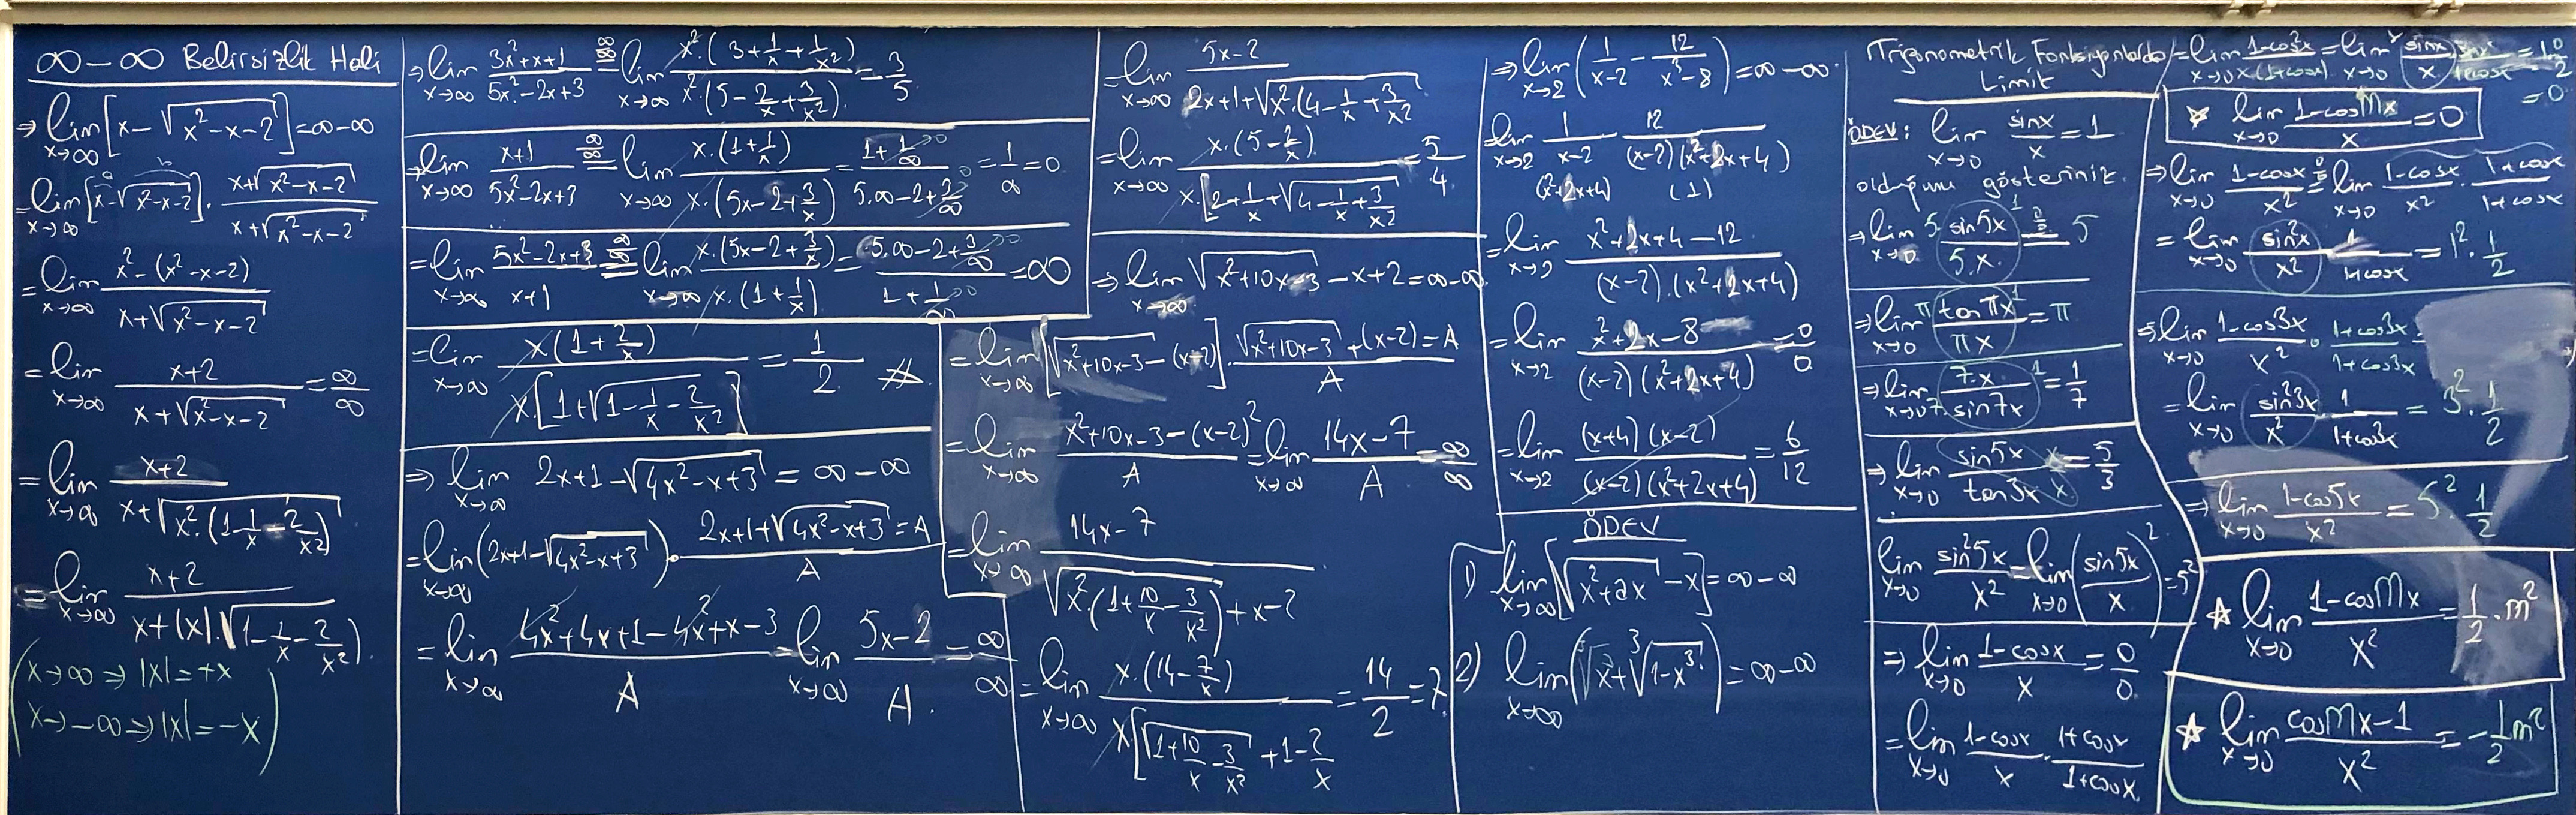 ∞-∞ Belirsizlik Hali
⇒ lim x→∞ [x-√(x²-x-2)] = ∞-∞
= lim x→∞ [x-√(x²-x-2)] . (x+√(x²-x-2))/(x+√(x²-x-2))
= lim x→∞ (x²-(x²-x-2))/(x+√(x²-x-2))
= lim x→∞ (x+2)/(x+√(x²-x-2)) = ∞/∞
= lim x→∞ (x+2)/(x+√(x².(1-1/x-2/x²)))
= lim x→∞ (x+2)/(x+|x|.√(1-1/x-2/x²))
(x→∞ ⇒ |x|=+x
x→-∞ ⇒ |x|=-x)
⇒ lim x→∞ (3x²+x+1)/(5x²-2x+3) =^(∞/∞) lim x→∞ (x².(3+1/x+1/x²))/(x².(5-2/x+3/x²)) = 3/5
⇒ lim x→∞ (x+1)/(5x²-2x+3) =^(∞/∞) lim x→∞ (x.(1+1/x))/(x.(5x-2+3/x)) = (1+1/∞)/(5.∞-2+3/∞) = 1/∞ = 0
= lim x→∞ (5x²-2x+3)/(x+1) =^(∞/∞) lim x→∞ (x.(5x-2+3/x))/(x.(1+1/x)) = (5.∞-2+3/∞)/(1+1/∞) = ∞
= lim x→∞ (x(1+2/x))/(x[1+√(1-1/x-2/x²)]) = 1/2
⇒ lim x→∞ 2x+1-√(4x²-x+3) = ∞-∞
= lim x→∞ (2x+1-√(4x²-x+3)) . (2x+1+√(4x²-x+3) = A)/A
= lim x→∞ (4x²+4x+1-4x²+x-3)/A = lim x→∞ (5x-2)/A = ∞/∞
= lim x→∞ (5x-2)/(2x+1+√(x².(4-1/x+3/x²)))
= lim x→∞ (x.(5-2/x))/(x.[2+1/x+√(4-1/x+3/x²)]) = 5/4
⇒ lim x→∞ √(x²+10x-3) -x+2 = ∞-∞
= lim x→∞ [√(x²+10x-3) -(x-2)] . (√(x²+10x-3) +(x-2) = A)/A
= lim x→∞ (x²+10x-3-(x-2)²)/A = lim x→∞ (14x-7)/A = ∞/∞
= lim x→∞ (14x-7)/(√(x².(1+10/x-3/x²))+x-2)
= lim x→∞ (x.(14-7/x))/(x[√(1+10/x-3/x²)+1-2/x]) = 14/2 = 7
⇒ lim x→2 (1/(x-2) - 12/(x³-8)) = ∞-∞
= lim x→2 1/(x-2) - 12/((x-2)(x²+2x+4))
(x²+2x+4) (1)
= lim x→2 (x²+2x+4-12)/((x-2).(x²+2x+4))
= lim x→2 (x²+2x-8)/((x-2)(x²+2x+4)) = 0/0
= lim x→2 ((x+4)(x-2))/((x-2)(x²+2x+4)) = 6/12
ÖDEV
1) lim x→∞ [√(x²+2x) -x] = ∞-∞
2) lim x→∞ (x+∛(1-x³)) = ∞-∞
Trigonometrik Fonksiyonlarda
Limit
ÖDEV: lim x→0 sinx/x = 1
olduğunu gösteriniz.
⇒ lim x→0 5.sin5x/5.x =^(0/0) 5
⇒ lim x→0 π tanπx/πx = π
⇒ lim x→0 7.x/7.sin7x = 1/7
⇒ lim x→0 sin5x/tan3x x/x = 5/3
lim x→0 sin²5x/x² = lim x→0 (sin5x/x)² = 5²
⇒ lim x→0 (1-cosx)/x = 0/0
= lim x→0 (1-cosx)/x . (1+cosx)/(1+cosx)
= lim x→0 (1-cos²x)/(x(1+cosx)) = lim x→0 sinx/x . sinx/(1+cosx) = 1.0/2
= 0
☆ lim x→0 (1-cosmx)/x = 0
⇒ lim x→0 (1-cosx)/x² =^(0/0) lim x→0 (1-cosx)/x² . (1+cosx)/(1+cosx)
= lim x→0 sin²x/x² . 1/(1+cosx) = 1².1/2
⇒ lim x→0 (1-cos3x)/x² . (1+cos3x)/(1+cos3x) =
= lim x→0 sin²3x/x² . 1/(1+cos3x) = 3².1/2
⇒ lim x→0 (1-cos5x)/x² = 5².1/2
☆ lim x→0 (1-cosmx)/x² = 1/2.m²
☆ lim x→0 (cosmx-1)/x² = -1/2m²